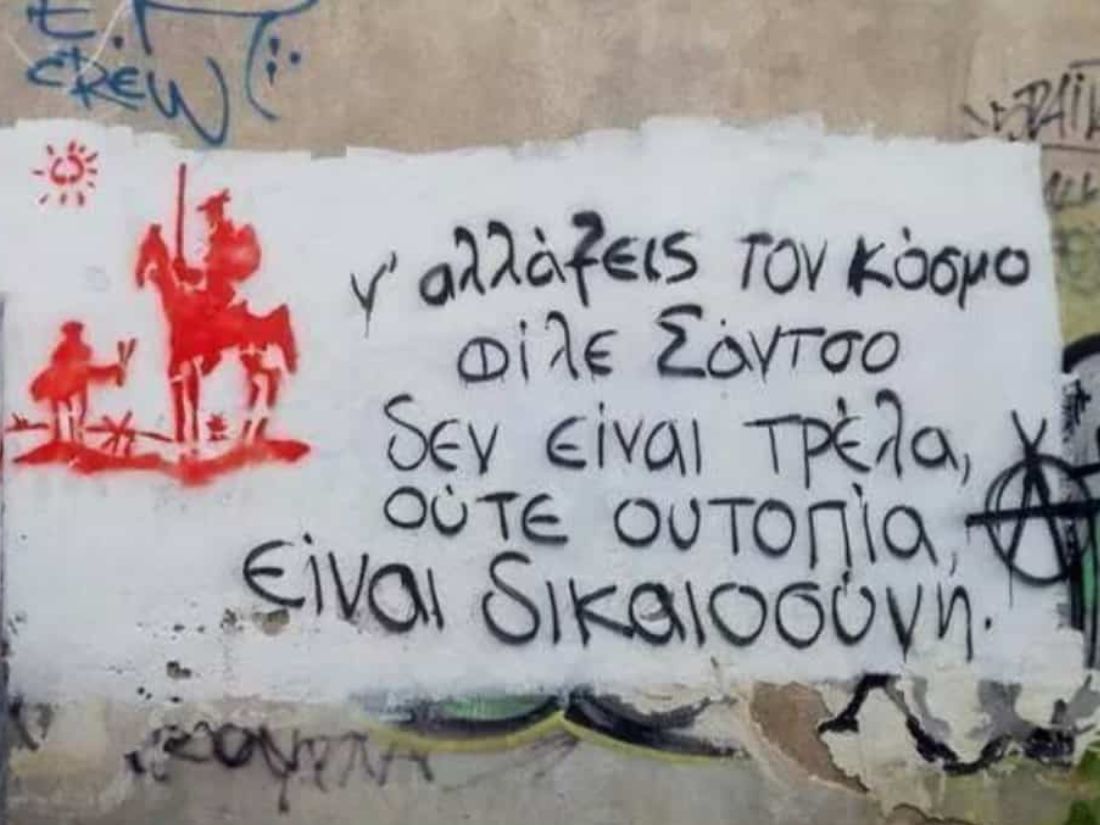 E.T
CREW
ν' αλλάζεις τον κόσμο
φίλε Σάντσο
δεν είναι τρέλα,
ούτε ουτοπία,
είναι δικαιοσύνη.